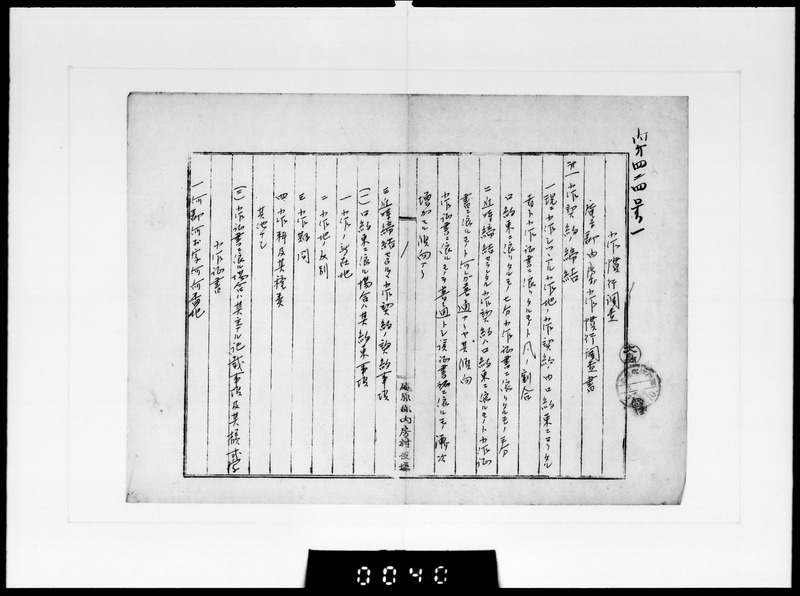 内才四二四号ノ一
小作慣行調査
小作慣行調査書
才一小作契約ノ締結
一現ニ小作シツヽアル小作地ノ小作契約ノ内口約束ニヨリタル
者ト小作証書ニ依リタルモノト凡ノ割合
口約束ニ依リタルモノ七分小作証書ニ依リタルモノ三分
二近時締結セラレタル小作契約ハ口約束ニ依ルモノト小作証
書ニ依ルモノト何レガ普通ナリヤ其傾向
小作証書ニ依ルモノヲ普通トシ証書ニ依ルモノ漸次
増加スル傾向アリ
三近時締結セラルヽ小作契約ノ契約事項
(一)口約束ニ依ル場合ハ其約束事項
一小作ノ所在地
二小作地ノ反別
三小作期間
四小作料及其種類
其他ナシ
(二)小作証書ニ依ル場合ハ其主ナル記載事項及其様式
小作証書
一何郡何村字何何番地
内房村役場
0040